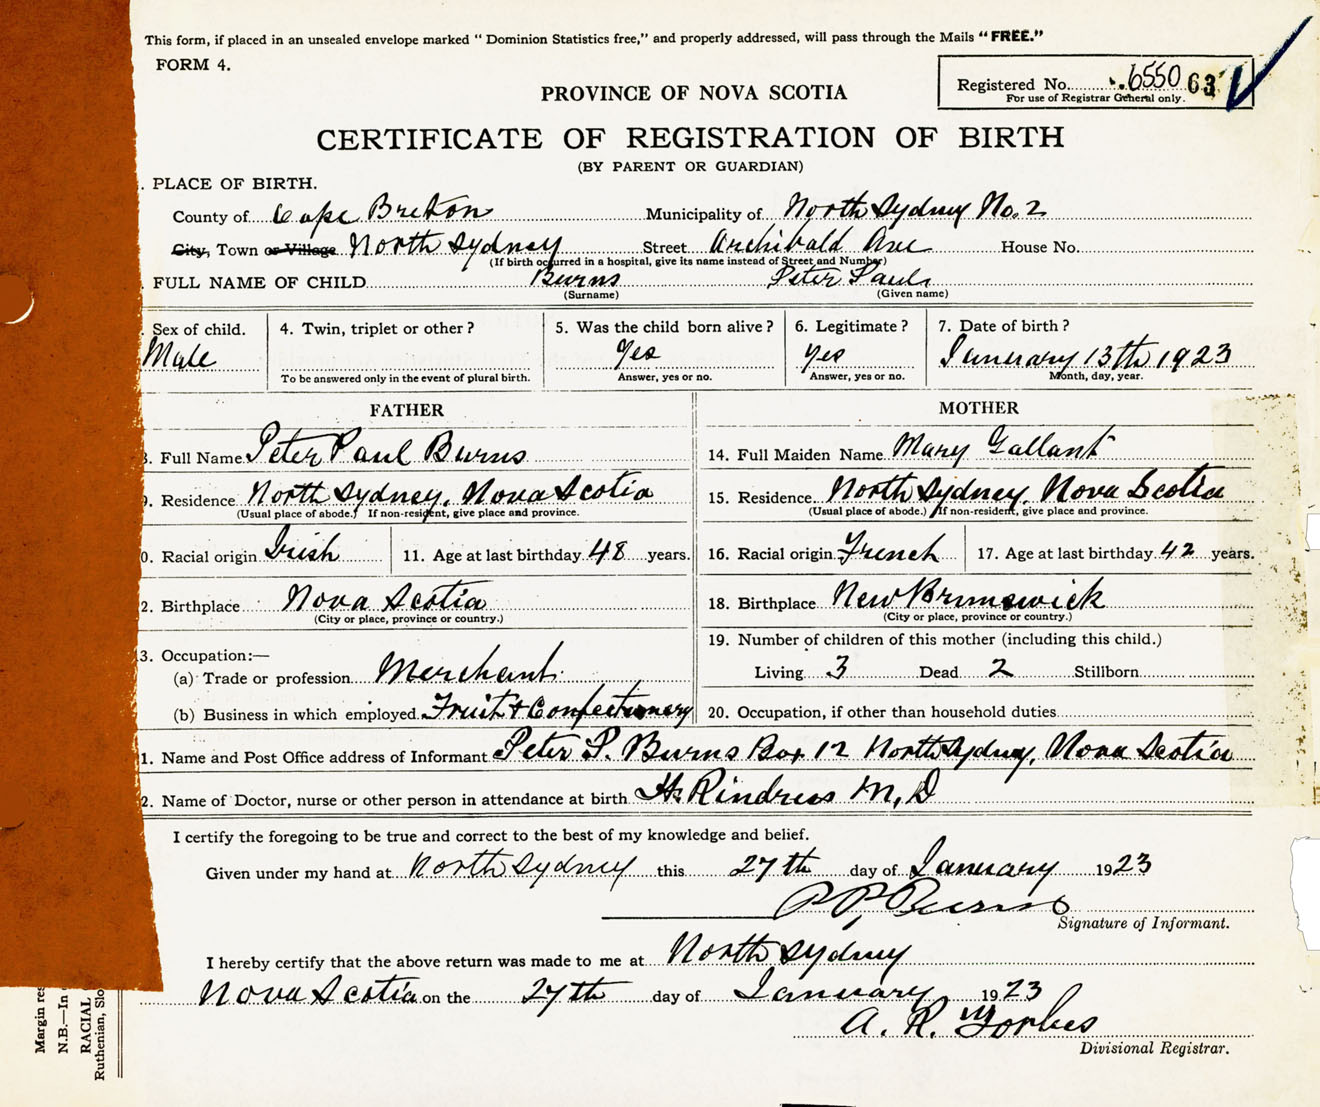 This form, if placed in an unsealed envelope marked “ Dominion Statistics free,” and properly addressed, will pass through the Mails “FREE.”
FORM 4.
Registered No. 6550 63
For use of Registrar General only.
PROVINCE OF NOVA SCOTIA
CERTIFICATE OF REGISTRATION OF BIRTH
(BY PARENT OR GUARDIAN)
. PLACE OF BIRTH.
County of Cape Breton Municipality of North Sydney No. 2
City, Town or Village North Sydney Street Archibald Ave House No.
(If birth occurred in a hospital, give its name instead of Street and Number)
. FULL NAME OF CHILD Burns Peter Paul
(Surname) (Given name)
. Sex of child. 4. Twin, triplet or other ? 5. Was the child born alive ? 6. Legitimate ? 7. Date of birth ?
Male Yes Yes January 13th 1923
To be answered only in the event of plural birth. Answer, yes or no. Answer, yes or no. Month, day, year.
FATHER MOTHER
8. Full Name Peter Paul Burns 14. Full Maiden Name Mary Gallant
9. Residence North Sydney, Nova Scotia 15. Residence North Sydney, Nova Scotia
(Usual place of abode.) If non-resident, give place and province. (Usual place of abode.) If non-resident, give place and province.
0. Racial origin Irish 11. Age at last birthday 48 years. 16. Racial origin French 17. Age at last birthday 42 years.
2. Birthplace Nova Scotia 18. Birthplace New Brunswick
(City or place, province or country.) (City or place, province or country.)
3. Occupation:— 19. Number of children of this mother (including this child.)
(a) Trade or profession Merchant Living 3 Dead 2 Stillborn
(b) Business in which employed Fruit & Confectionery 20. Occupation, if other than household duties
1. Name and Post Office address of Informant Peter P. Burns Box 12 North Sydney, Nova Scotia
2. Name of Doctor, nurse or other person in attendance at birth Rindress M, D
I certify the foregoing to be true and correct to the best of my knowledge and belief.
Given under my hand at North Sydney this 27th day of January 1923
P P Burns
Signature of Informant.
I hereby certify that the above return was made to me at North Sydney
Nova Scotia on the 27th day of January 1923
A. R. Forbes
Divisional Registrar.
Margin res
N.B.—In
RACIAL
Ruthenian, Slo